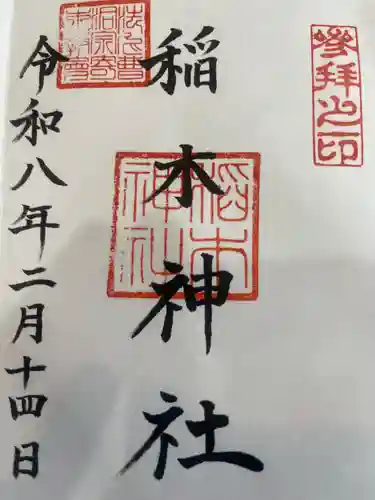 參拜之印
稲木神社
稲木
神社
令和八年二月十四日